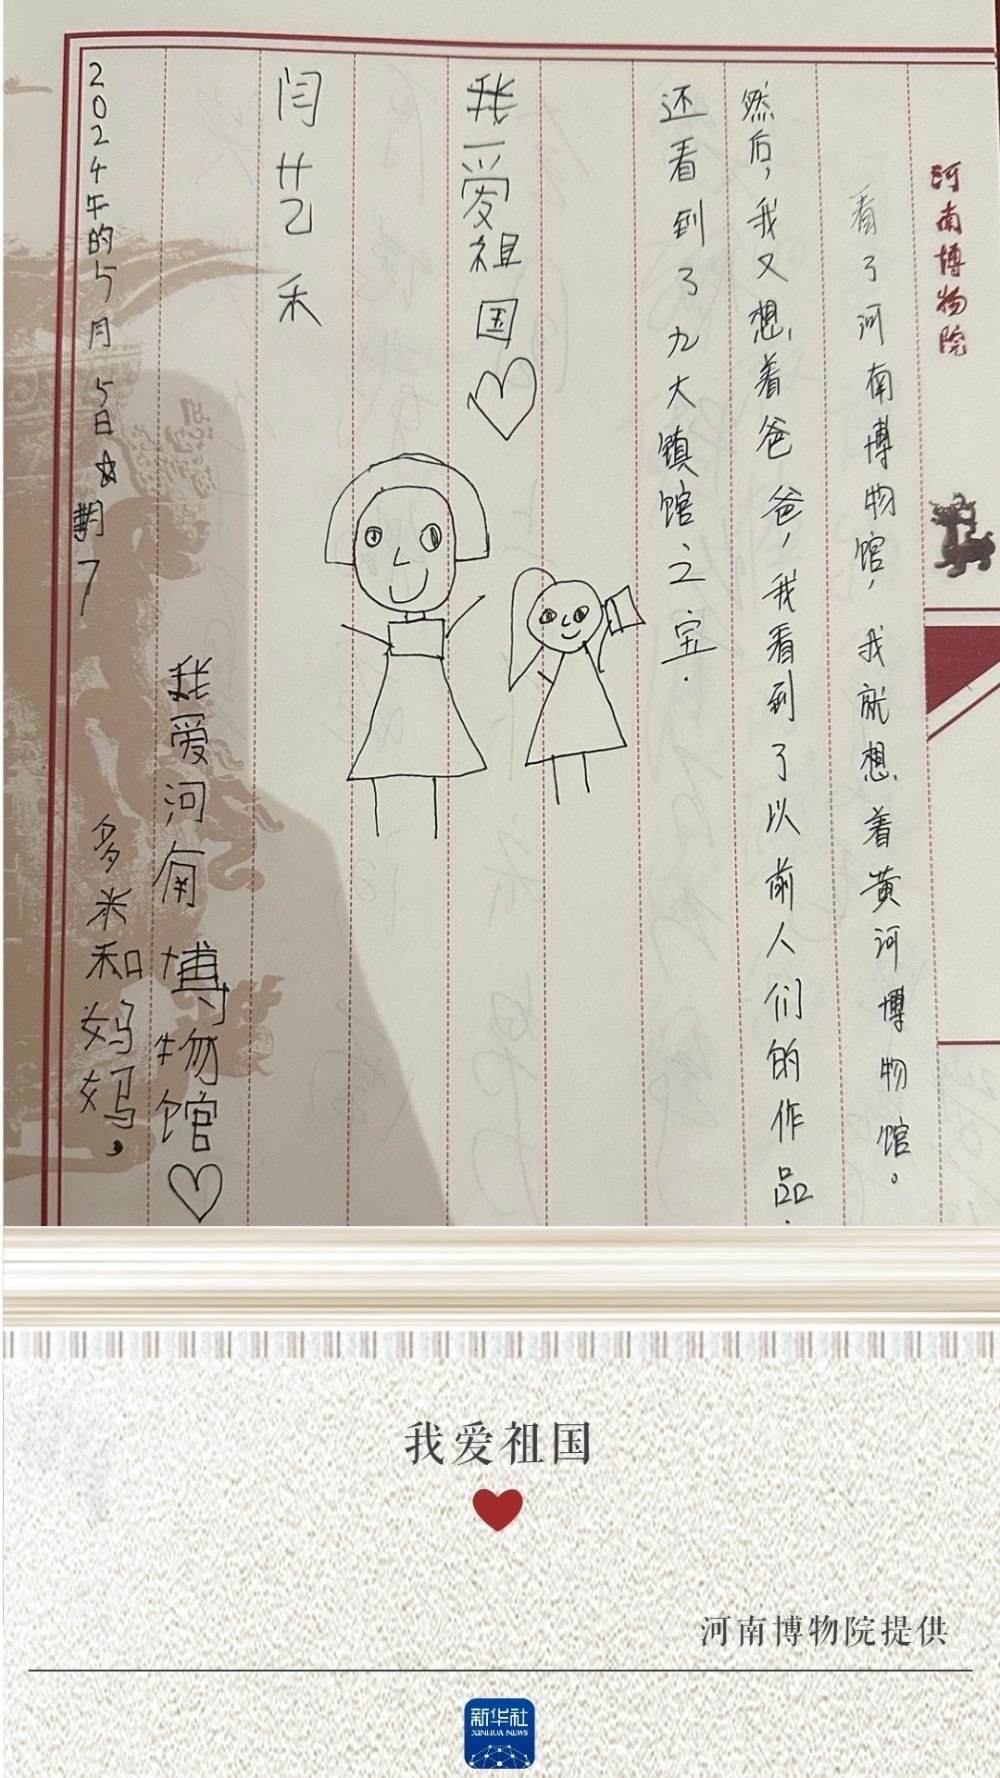 河南博物院
看了河南博物馆，我就想着黄河博物馆。
然后，我又想着爸爸，我看到了以前人们的作品.
还看到了九大镇馆之宝.
我爱祖国
闫艺禾
我爱河南博物馆
2024年的5月5日星期7
多米和妈妈,
我爱祖国
河南博物院提供
新华社
XINHUA NEWS